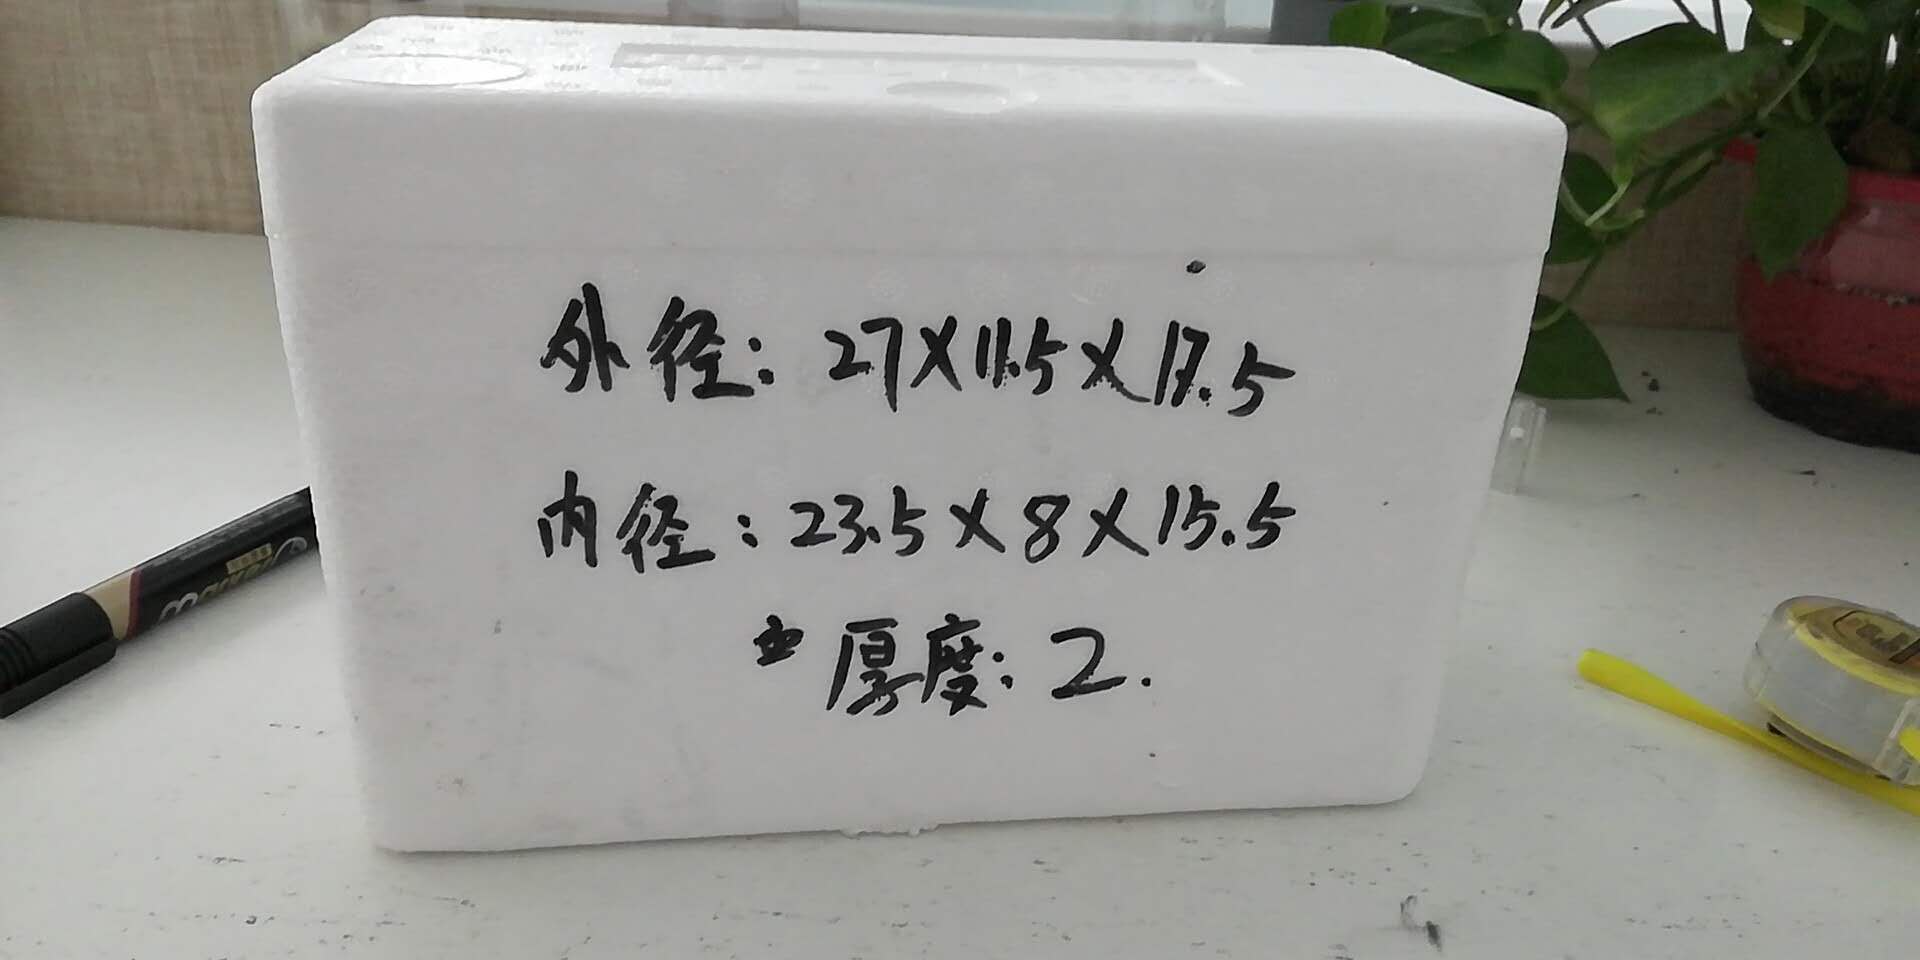 外径：27×11.5×17.5
内径：23.5×8×15.5
厚度：2.